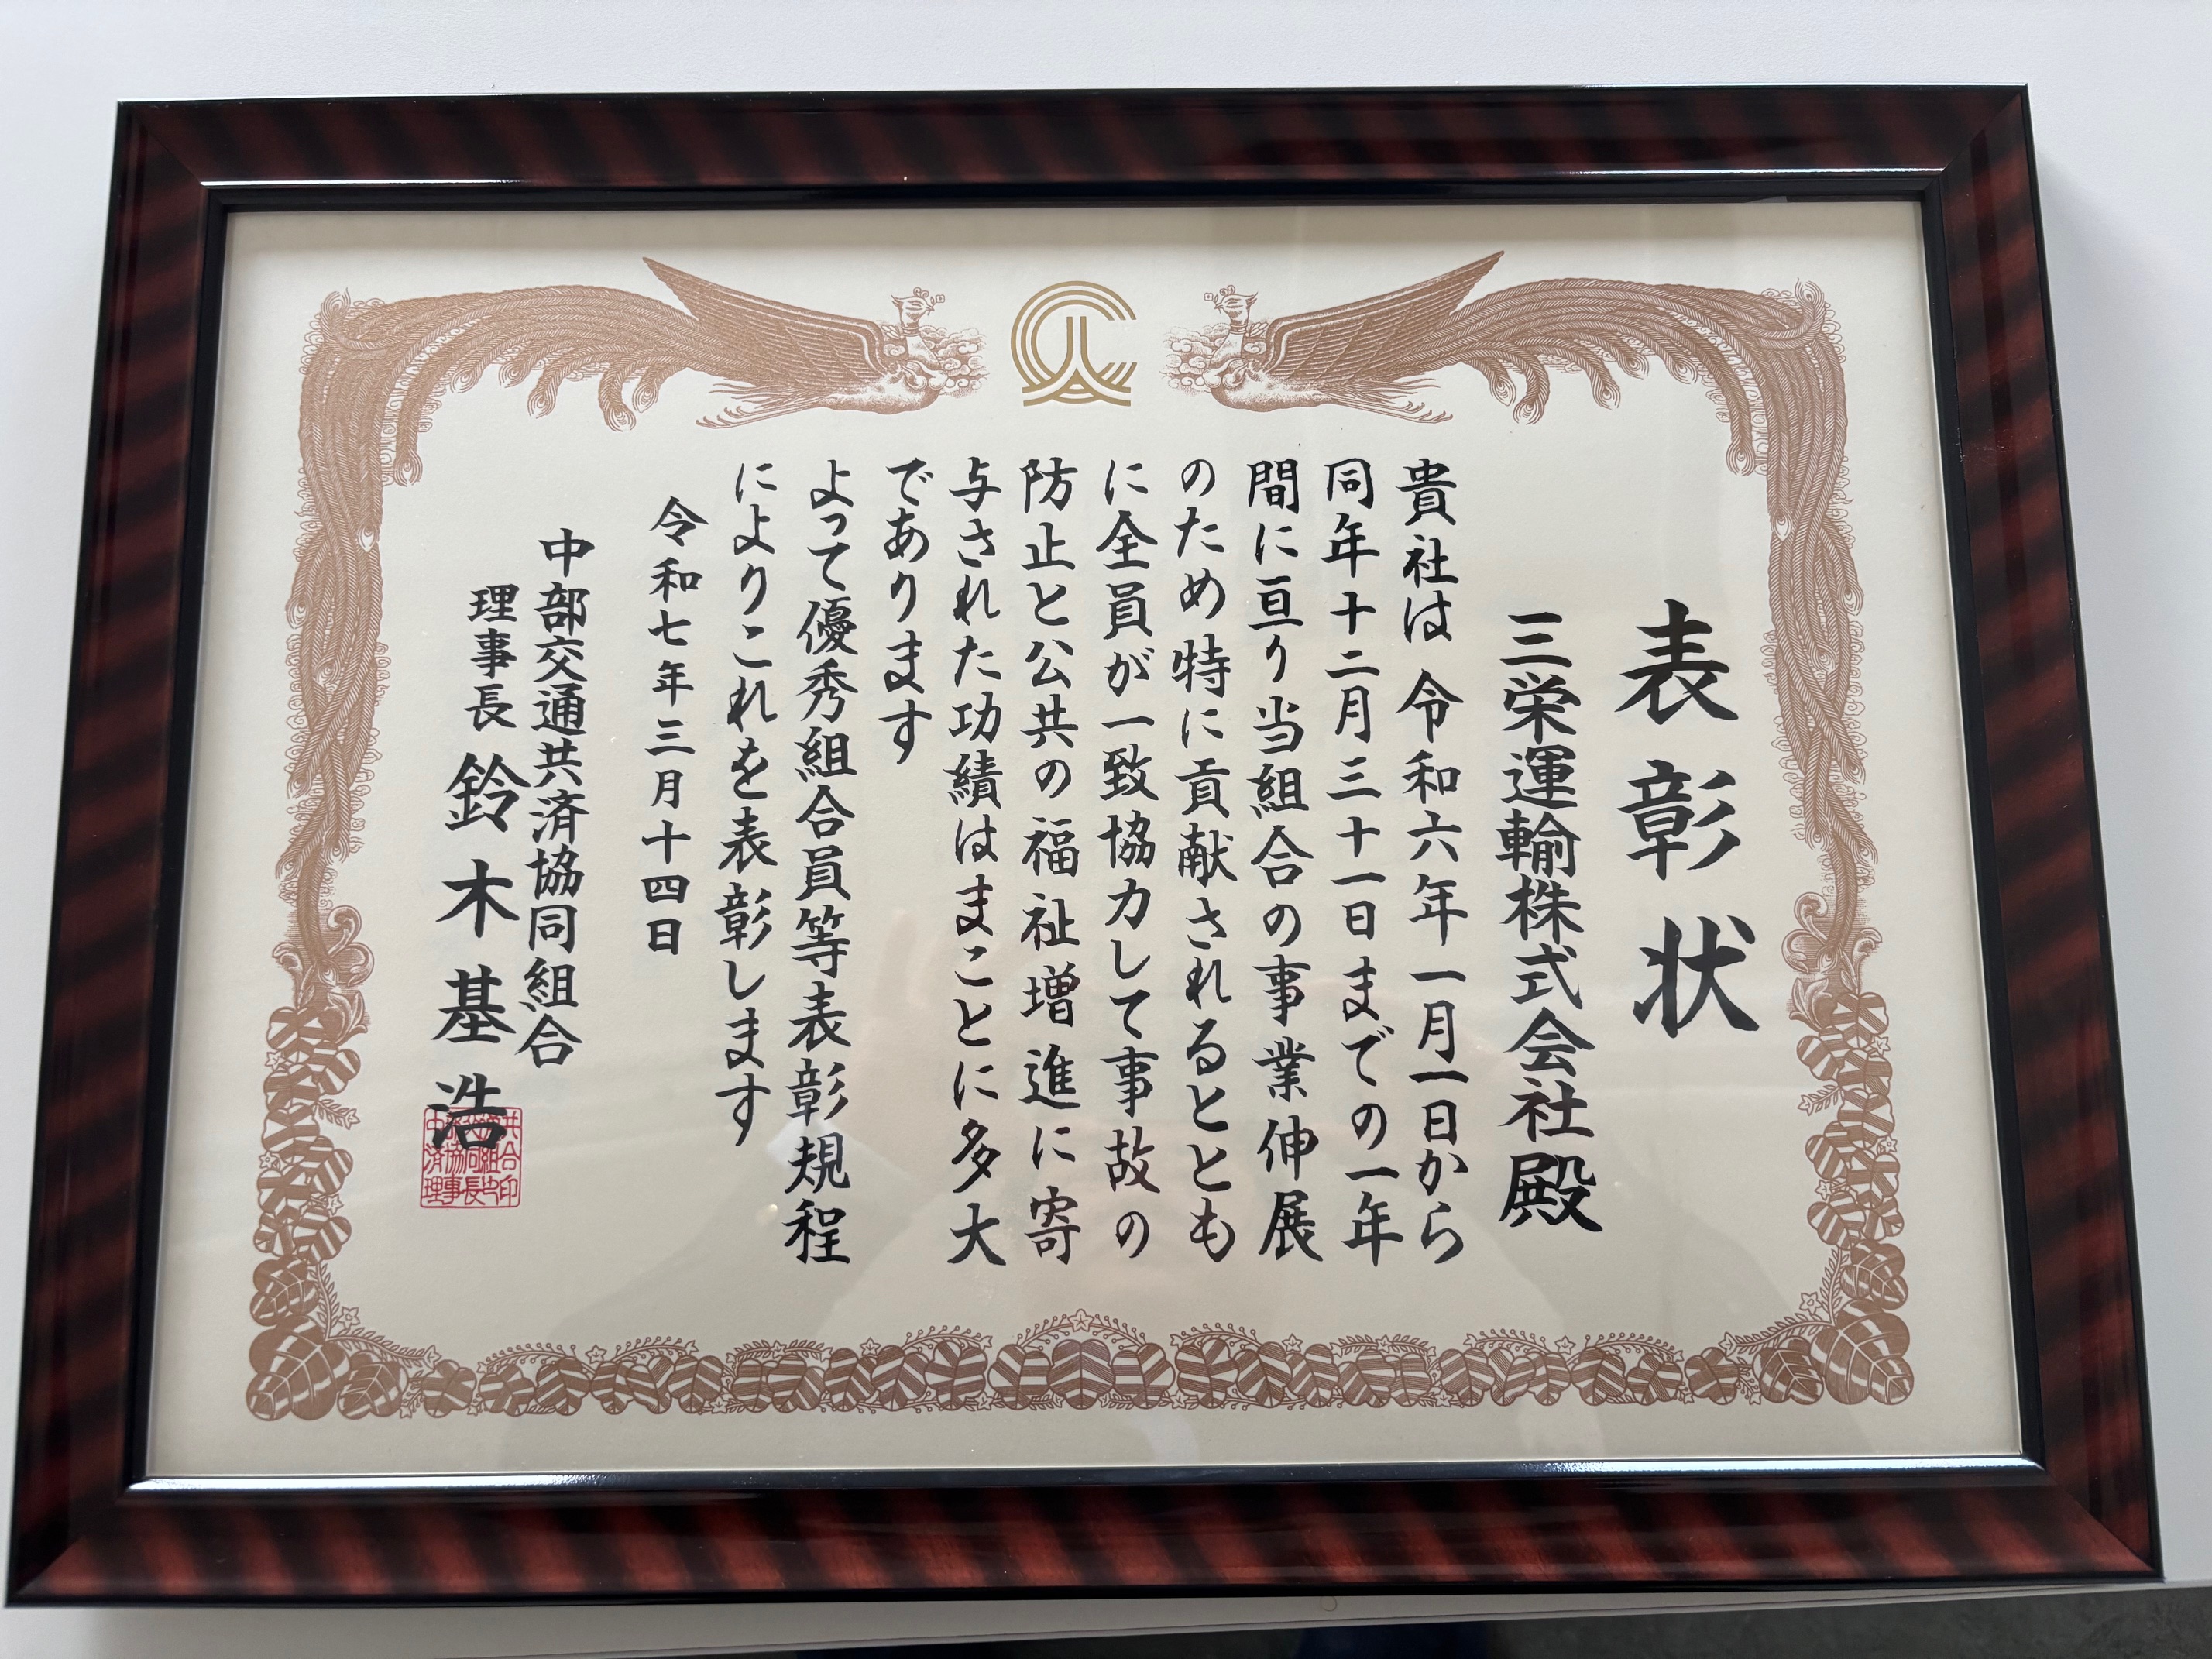 表彰状
三栄運輸株式会社殿
貴社は令和六年一月一日から
同年十二月三十一日までの一年
間に亘り当組合の事業伸展
のため特に貢献されるととも
に全員が一致協力して事故の
防止と公共の福祉増進に寄
与された功績はまことに多大
であります
よって優秀組合員等表彰規程
によりこれを表彰します
令和七年三月十四日
中部交通共済協同組合
理事長 鈴木基浩